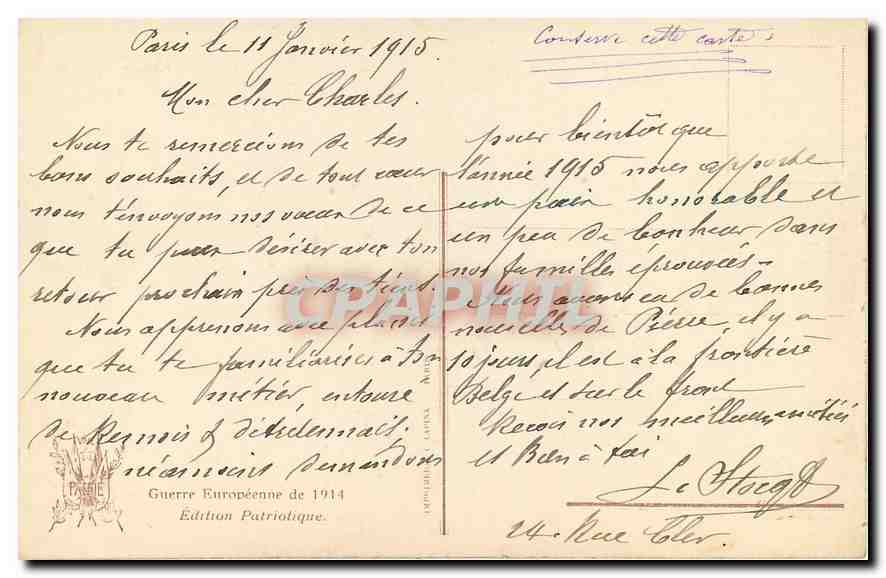 Paris le 11 Janvier 1915.
Conserve cette carte
Mon cher Charles.
Nous te remercions de tes
bons souhaits, et de tout cœur
nous t'envoyons nos vœux de ce
que tu peux désirer avec ton
retour prochain près des tiens.
Nous apprenons avec plaisir
que tu te familiarises à ton
nouveau métier, entouré
de Remois & d'Ardennais,
néanmoins demandons
pour bientôt que
l'année 1915 nous apporte
une paix honorable et
un peu de bonheur dans
nos familles éprouvées -
Nous avons eu de bonnes
nouvelles de Pierre, il y a
10 jours, il est à la frontière
Belge et sur le front
Reçois nos meilleures amitiés
et Bien à toi
24. Rue Cler.
CPAPHIL
PATRIE
Guerre Européenne de 1914
Édition Patriotique.
LAPINA
PARIS